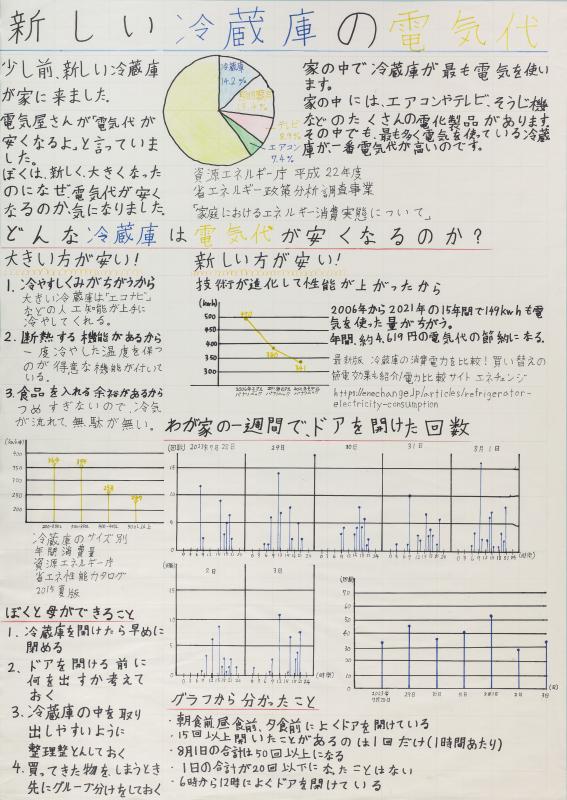 新しい冷蔵庫の電気代
少し前、新しい冷蔵庫
が家に来ました。
電気屋さんが「電気代が
安くなるよ」と言っていま
した。
ぼくは、新しく、大きくなった
のになぜ電気代が安く
なるのか、気になりました。
冷蔵庫
14.2%
照明器具
13.4%
テレビ
8.9%
エアコン
7.4%
家の中で冷蔵庫が最も電気を使い
ます。
家の中には、エアコンやテレビ、そうじ機
などのたくさんの電化製品があります。
その中でも、最も多く電気を使っている冷蔵
庫が一番電気代が高いのです。
資源エネルギー庁 平成22年度
省エネルギー政策分析調査事業
「家庭におけるエネルギー消費実態について」
どんな冷蔵庫は電気代が安くなるのか?
大きい方が安い!
1. 冷やすしくみがちがうから
大きい冷蔵庫は「エコナビ」
などの人工知能が上手に
冷やしてくれる。
2. 断熱する機能があるから
一度冷やした温度を保つ
のが得意な機能が付いて
いる。
3. 食品を入れる余裕があるから
つめすぎないので、冷気
が流れて無駄が無い。
新しい方が安い!
技術が進化して性能が上がったから
(kWh)
500
450
400
350
300
490
380
341
2006年から2021年の15年間で149kWhも電
気を使った量がちがう。
年間、約4,619円の電気代の節約になる。
最新版 冷蔵庫の消費電力を比較!買い替えの
節電効果も紹介/電力比較サイト エネチェンジ
https://enechange.jp/articles/refrigerator-
electricity-consumption
冷蔵庫のサイズ別
年間消費量
資源エネルギー庁
省エネ性能カタログ
2015夏版
わが家の一週間で、ドアを開けた回数
(回数)
2023年7月28日
29日
30日
31日
8月1日
(時間)
2日
3日
(時間)
(回数)
70
60
50
40
30
20
10
0
(日)
ぼくと母ができること
1. 冷蔵庫を開けたら早めに
閉める
2. ドアを開ける前に
何を出すか考えて
おく
3. 冷蔵庫の中を取り
出しやすいように
整理整とんしておく
4. 買ってきた物をしまうとき
先にグループ分けをしておく
グラフから分かったこと
・朝食前、昼食前、夕食前によくドアを開けている
・15回以上開いたことがあるのは1回だけ(1時間あたり)
・8月1日の合計は50回以上になる
・1日の合計が20回以下になったことはない
・6時から12時によくドアを開けている